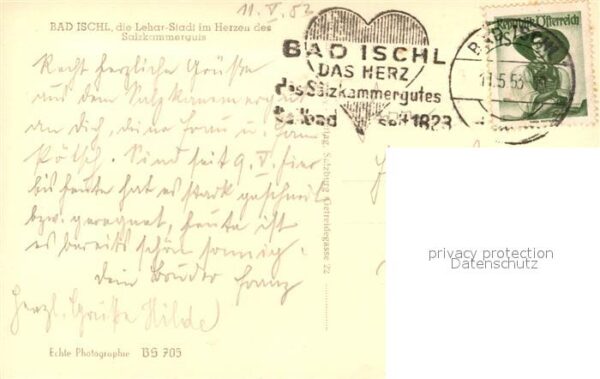 11. V. 53
BAD ISCHL, die Lehar-Stadt im Herzen des
Salzkammerguts
BAD ISCHL
DAS HERZ
des Salzkammergutes
Solbad seit 1823
Republik Österreich
BAD ISCHL
11.5.53
Recht herzliche Grüße
aus dem Salzkammergut
an Dich, deine Frau u. Fam.
Sind seit 9. V. hier
bis heute hat es stark geschneit
bzw. geregnet, heute ist
es bereits schön sonnig.
Dein Bruder Franz
Herzl. Grüße Hilde
Salzburg, Getreidegasse 22
Echte Photographie BG 705
privacy protection
Datenschutz